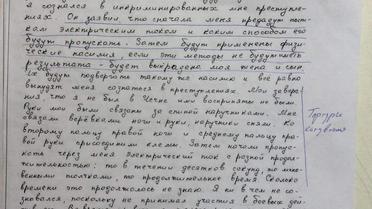 я сознался в инкриминированных мне преступле-
ниях. Он заявил, что сначала меня предадут пыт-
кам электрическим током и каким способом его
будут пропускать. Затем будут применены физи-
ческие насилия, если эти методы не будут иметь
результата - будет выкрадена моя жена и сын.
Их будут подвергать такому же насилию и все равно
вынудят меня сознаться в преступлениях. Мои завере-
ния, что я не был в Чечне ими восприняты не были.
Руки мои были связаны за спиной наручниками. Мне
обвязали веревками ноги и руки, наручники сняли. Ко
второму пальцу правой ноги и среднему пальцу пра-
вой руки присоединили клеммы. Затем начали пропус-
кать через меня электрический ток с разной продол-
жительностью: то в течении десятков секунд, то мгно-
венными толчками, то продолжительное время. Сколько
времени это продолжалось не знаю. Я ни в чем не со-
знавался, поскольку не принимал участия в боевых дей-